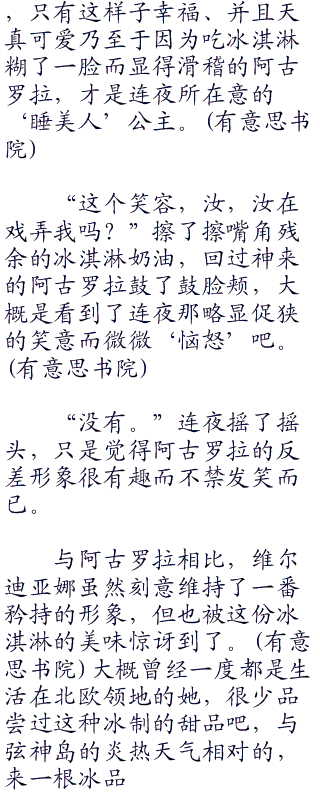 ，只有这样子幸福、并且天
真可爱乃至于因为吃冰淇淋
糊了一脸而显得滑稽的阿古
罗拉，才是连夜所在意的
‘睡美人’公主。(有意思书
院)
“这个笑容，汝，汝在
戏弄我吗？”擦了擦嘴角残
余的冰淇淋奶油，回过神来
的阿古罗拉鼓了鼓脸颊，大
概是看到了连夜那略显促狭
的笑意而微微‘恼怒’吧。
(有意思书院)
“没有。”连夜摇了摇
头，只是觉得阿古罗拉的反
差形象很有趣而不禁发笑而
已。
与阿古罗拉相比，维尔
迪亚娜虽然刻意维持了一番
矜持的形象，但也被这份冰
淇淋的美味惊讶到了。(有意
思书院)大概曾经一度都是生
活在北欧领地的她，很少品
尝过这种冰制的甜品吧，与
弦神岛的炎热天气相对的，
来一根冰品